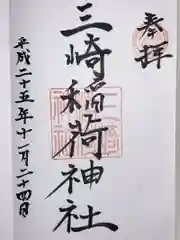 奉拝
三崎稲荷神社
平成二十五年十一月二十四日